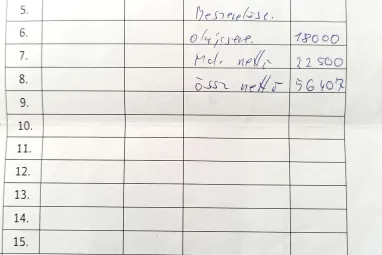 5. Beszerelése.
6. olajcsere 18000
7. Mdí nettó 22500
8. össz nettó 56407
9.
10.
11.
12.
13.
14.
15.